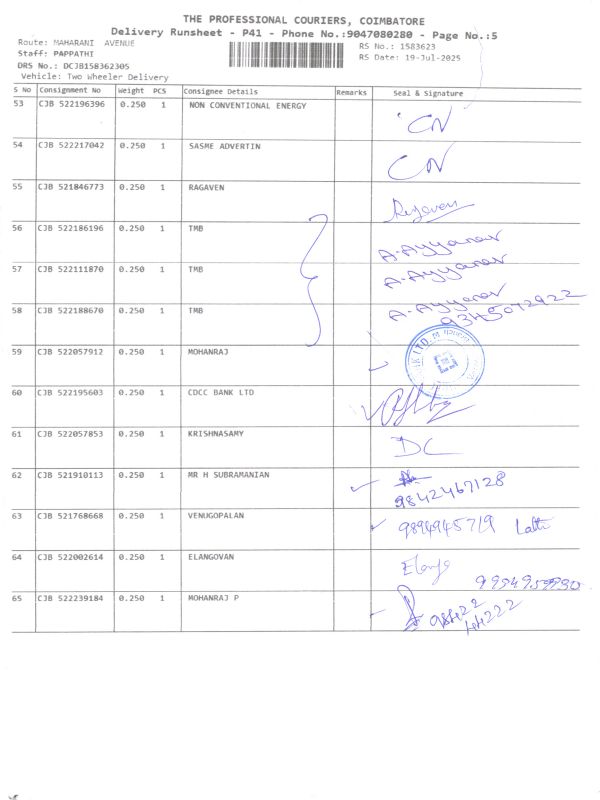 THE PROFESSIONAL COURIERS, COIMBATORE
Delivery Runsheet - P41 - Phone No.:9047080280 - Page No.:5
Route: MAHARANI AVENUE
RS No.: 1583623
Staff: PAPPATHI
RS Date: 19-Jul-2025
DRS No.: DCJB158362305
Vehicle: Two Wheeler Delivery
S No Consignment No Weight PCS Consignee Details Remarks Seal & Signature
53 CJB 522196396 0.250 1 NON CONVENTIONAL ENERGY CN
54 CJB 522217042 0.250 1 SASME ADVERTIN CN
55 CJB 521846773 0.250 1 RAGAVEN Ragaven
56 CJB 522186196 0.250 1 TMB A-Ayyanar
57 CJB 522111870 0.250 1 TMB A-Ayyanar
58 CJB 522188670 0.250 1 TMB A-Ayyanar
9345072922
59 CJB 522057912 0.250 1 MOHANRAJ
LTD.
60 CJB 522195603 0.250 1 CDCC BANK LTD
61 CJB 522057853 0.250 1 KRISHNASAMY DC
62 CJB 521910113 0.250 1 MR H SUBRAMANIAN
9842467128
63 CJB 521768668 0.250 1 VENUGOPALAN 9894945719
64 CJB 522002614 0.250 1 ELANGOVAN
65 CJB 522239184 0.250 1 MOHANRAJ P 98422
44222